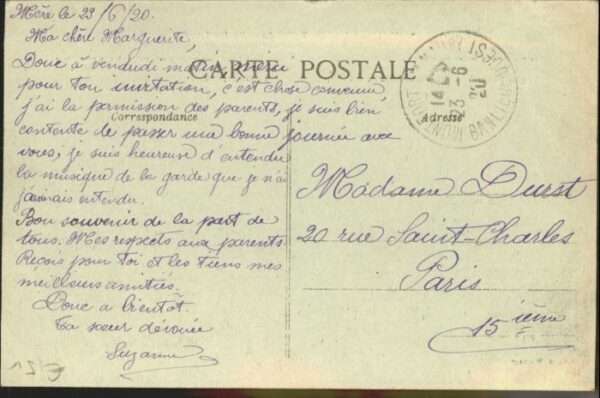 Mère le 23/6/20.
Ma chère Marguerite,
Donc à vendredi matin, merci
pour ton invitation, c'est chose convenue,
j'ai la permission des parents, je suis bien
contente de passer une bonne journée avec
vous; je suis heureuse d'entendre
la musique de la garde que je n'ai
jamais entendu.
Bon souvenir de la part de
tous. Mes respects aux parents.
Reçois pour toi et les tiens mes
meilleurs amitiés.
Donc a bientôt.
Ta sœur dévouée
Suzanne
CARTE POSTALE
Correspondance
Adresse
14
23 -6
20
Madame Durst
20 rue Saint-Charles
Paris
15 ième